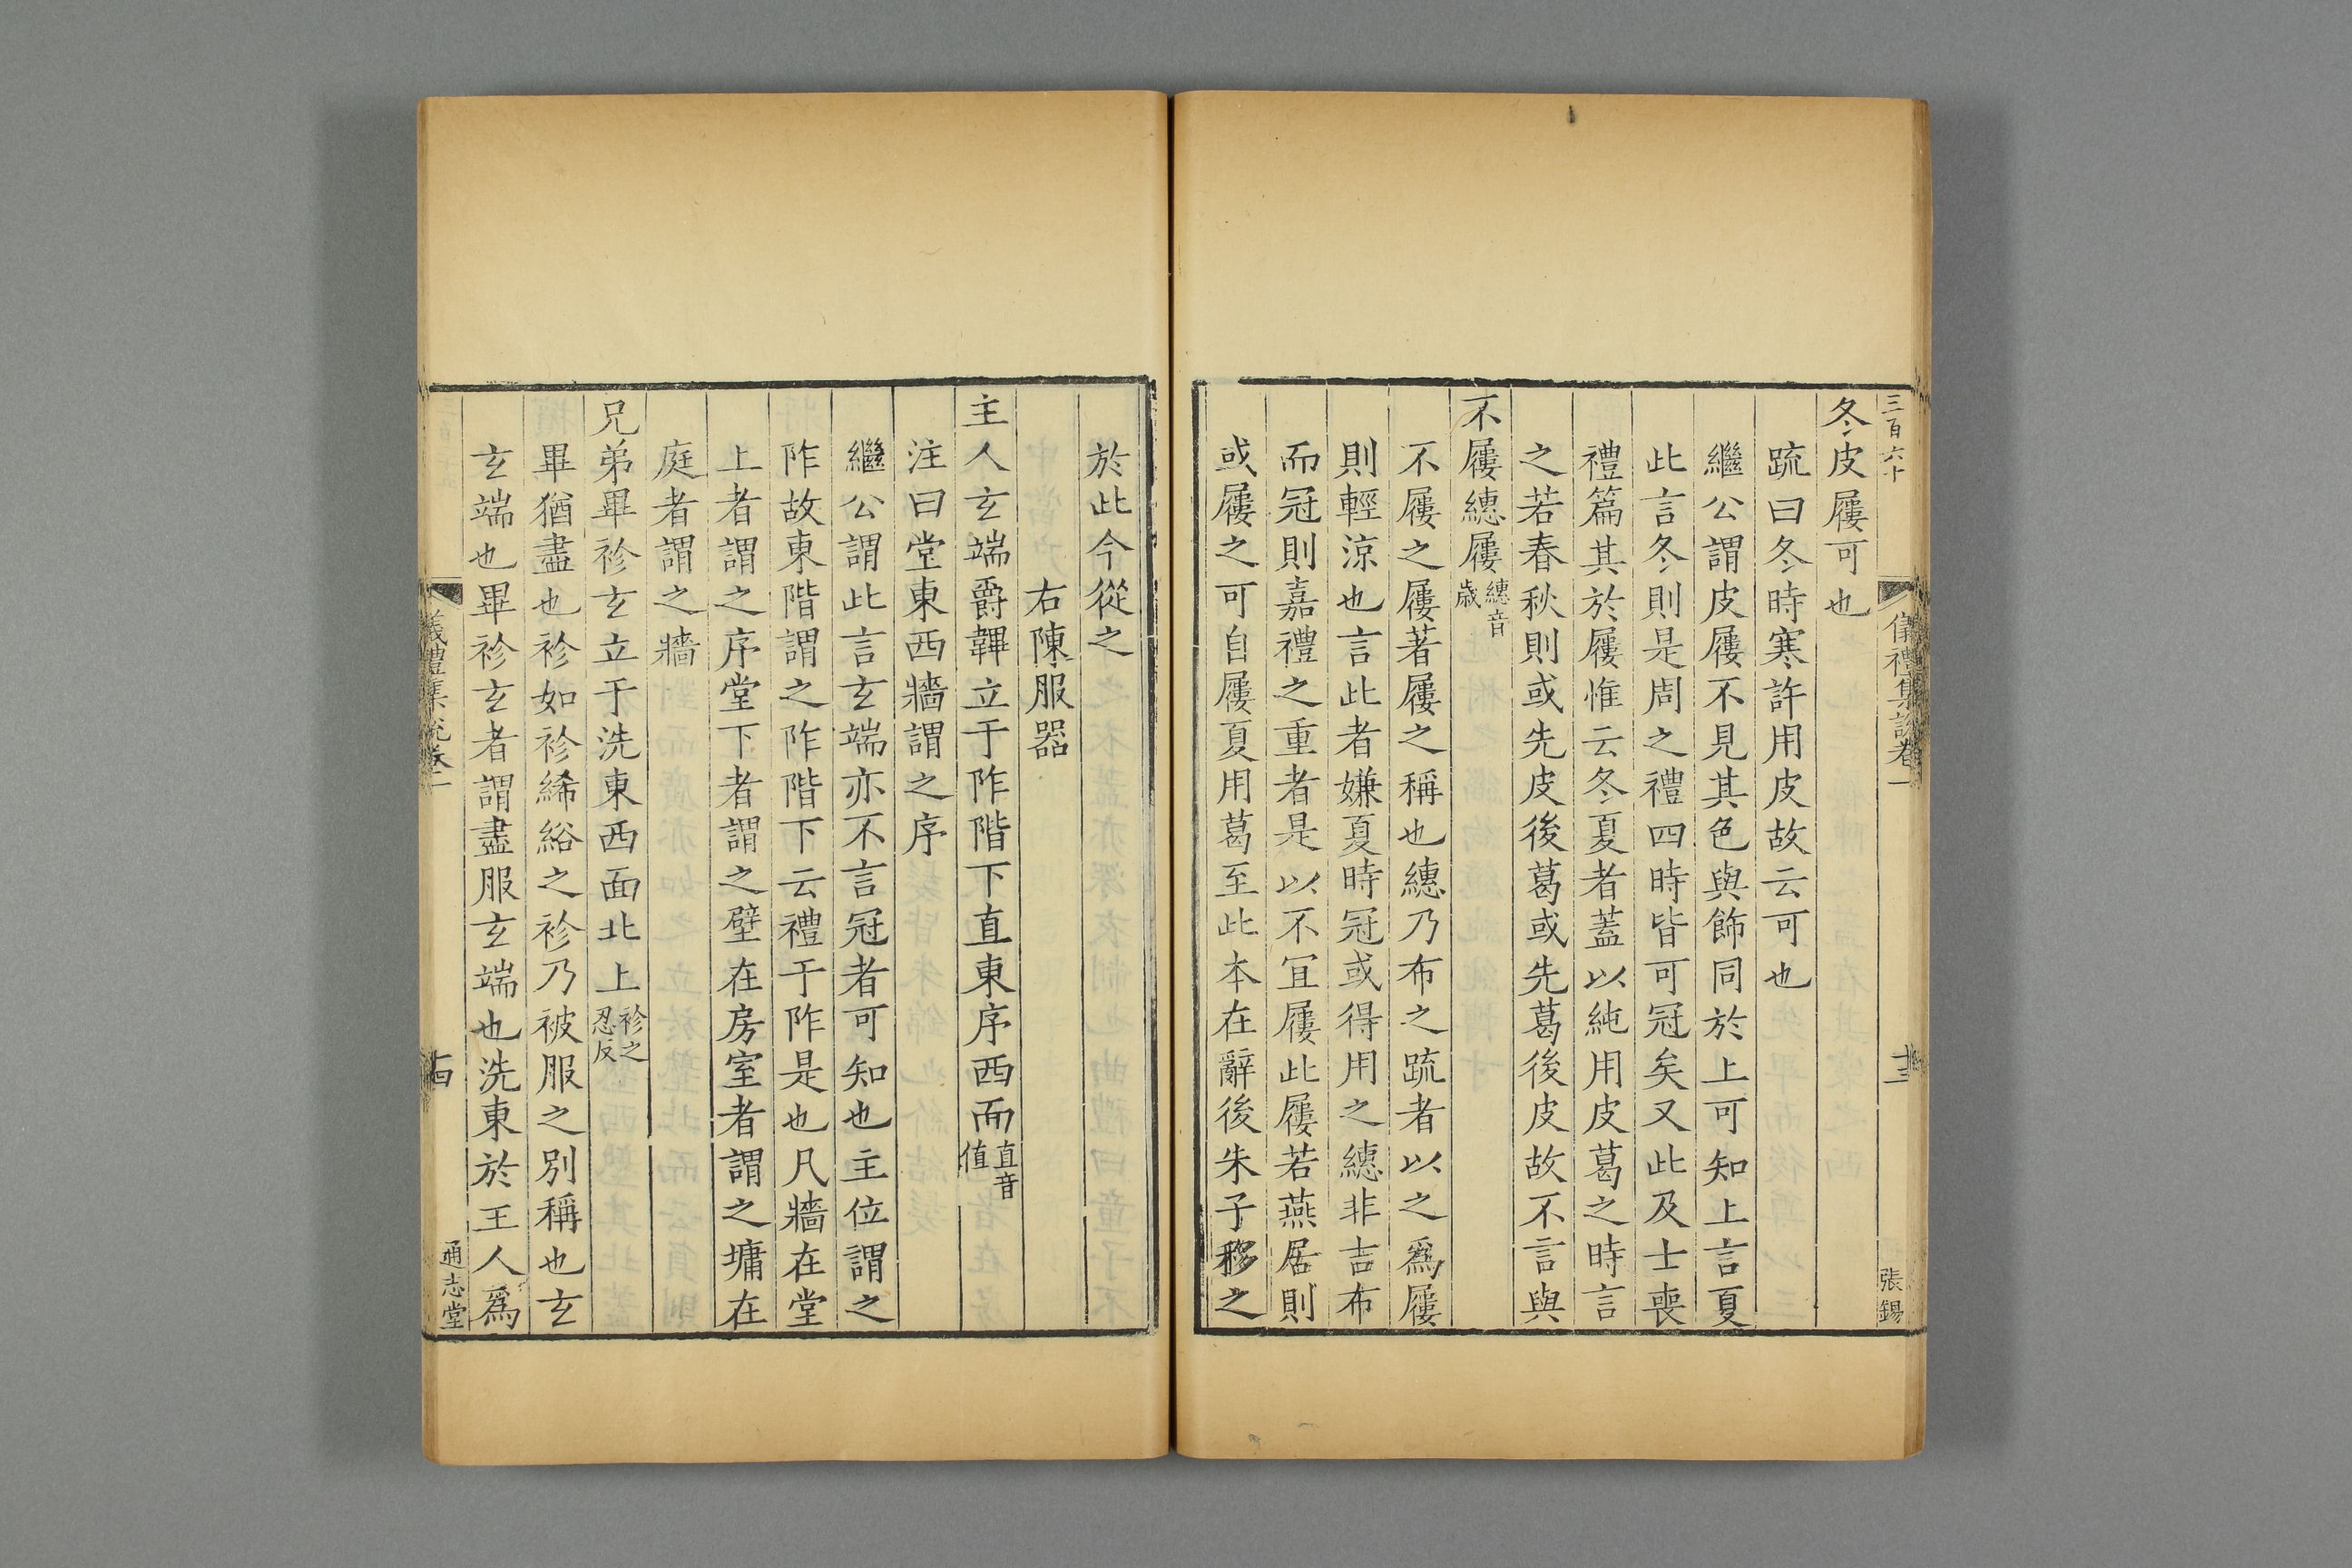 三百六十
儀禮集說卷一
十三
張錫
冬皮屨可也
疏曰冬時寒許用皮故云可也
繼公謂皮屨不見其色與飾同於上可知上言夏
此言冬則是周之禮四時皆可冠矣又此及士喪
禮篇其於屨惟云冬夏者蓋以純用皮葛之時言
之若春秋則或先皮後葛或先葛後皮故不言與
不屨繐屨繐音歲
不屨之屨著屨之稱也繐乃布之疏者以之為屨
則輕涼也言此者嫌夏時冠或得用之繐非吉布
而冠則嘉禮之重者是以不宜屨此屨若燕居則
或屨之可自屨夏用葛至此本在辭後朱子移之
於此今從之
右陳服器
主人玄端爵韠立于阼階下直東序西面直音值
注曰堂東西牆謂之序
繼公謂此言玄端亦不言冠者可知也主位謂之
阼故東階謂之阼階下云禮于阼是也凡牆在堂
上者謂之序堂下者謂之壁在房室者謂之墉在
庭者謂之牆
兄弟畢袗玄立于洗東西面北上袗之忍反
畢猶盡也袗如袗絺綌之袗乃被服之別稱也玄
玄端也畢袗玄者謂盡服玄端也洗東於主人為
儀禮集說卷一
十四
通志堂